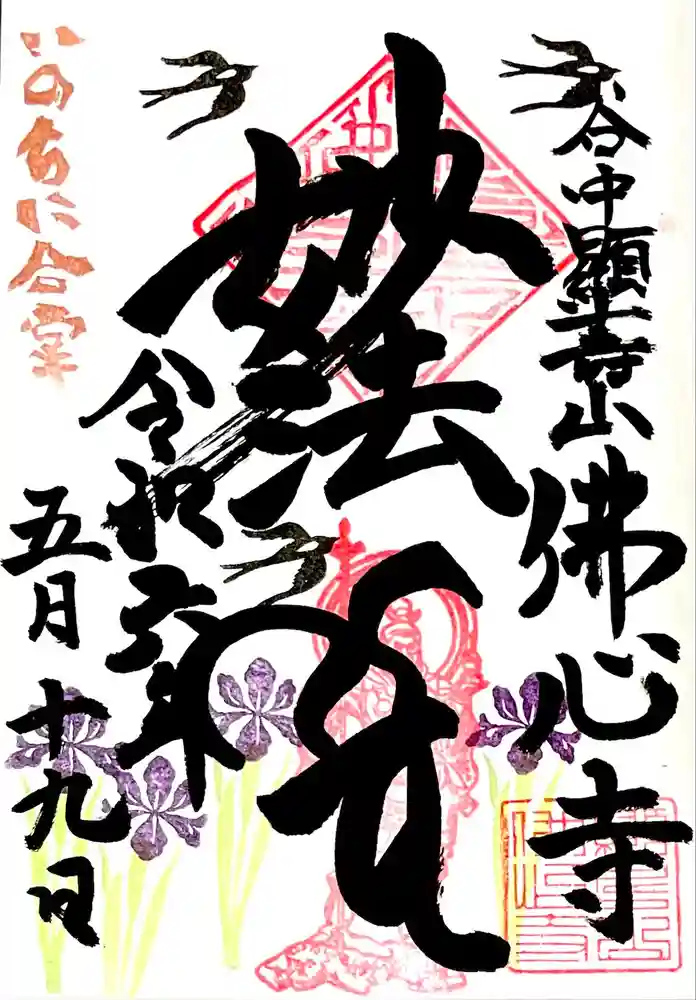 谷中顯寿山佛心寺
妙法
令和六年
五月十九日
いのちに合掌